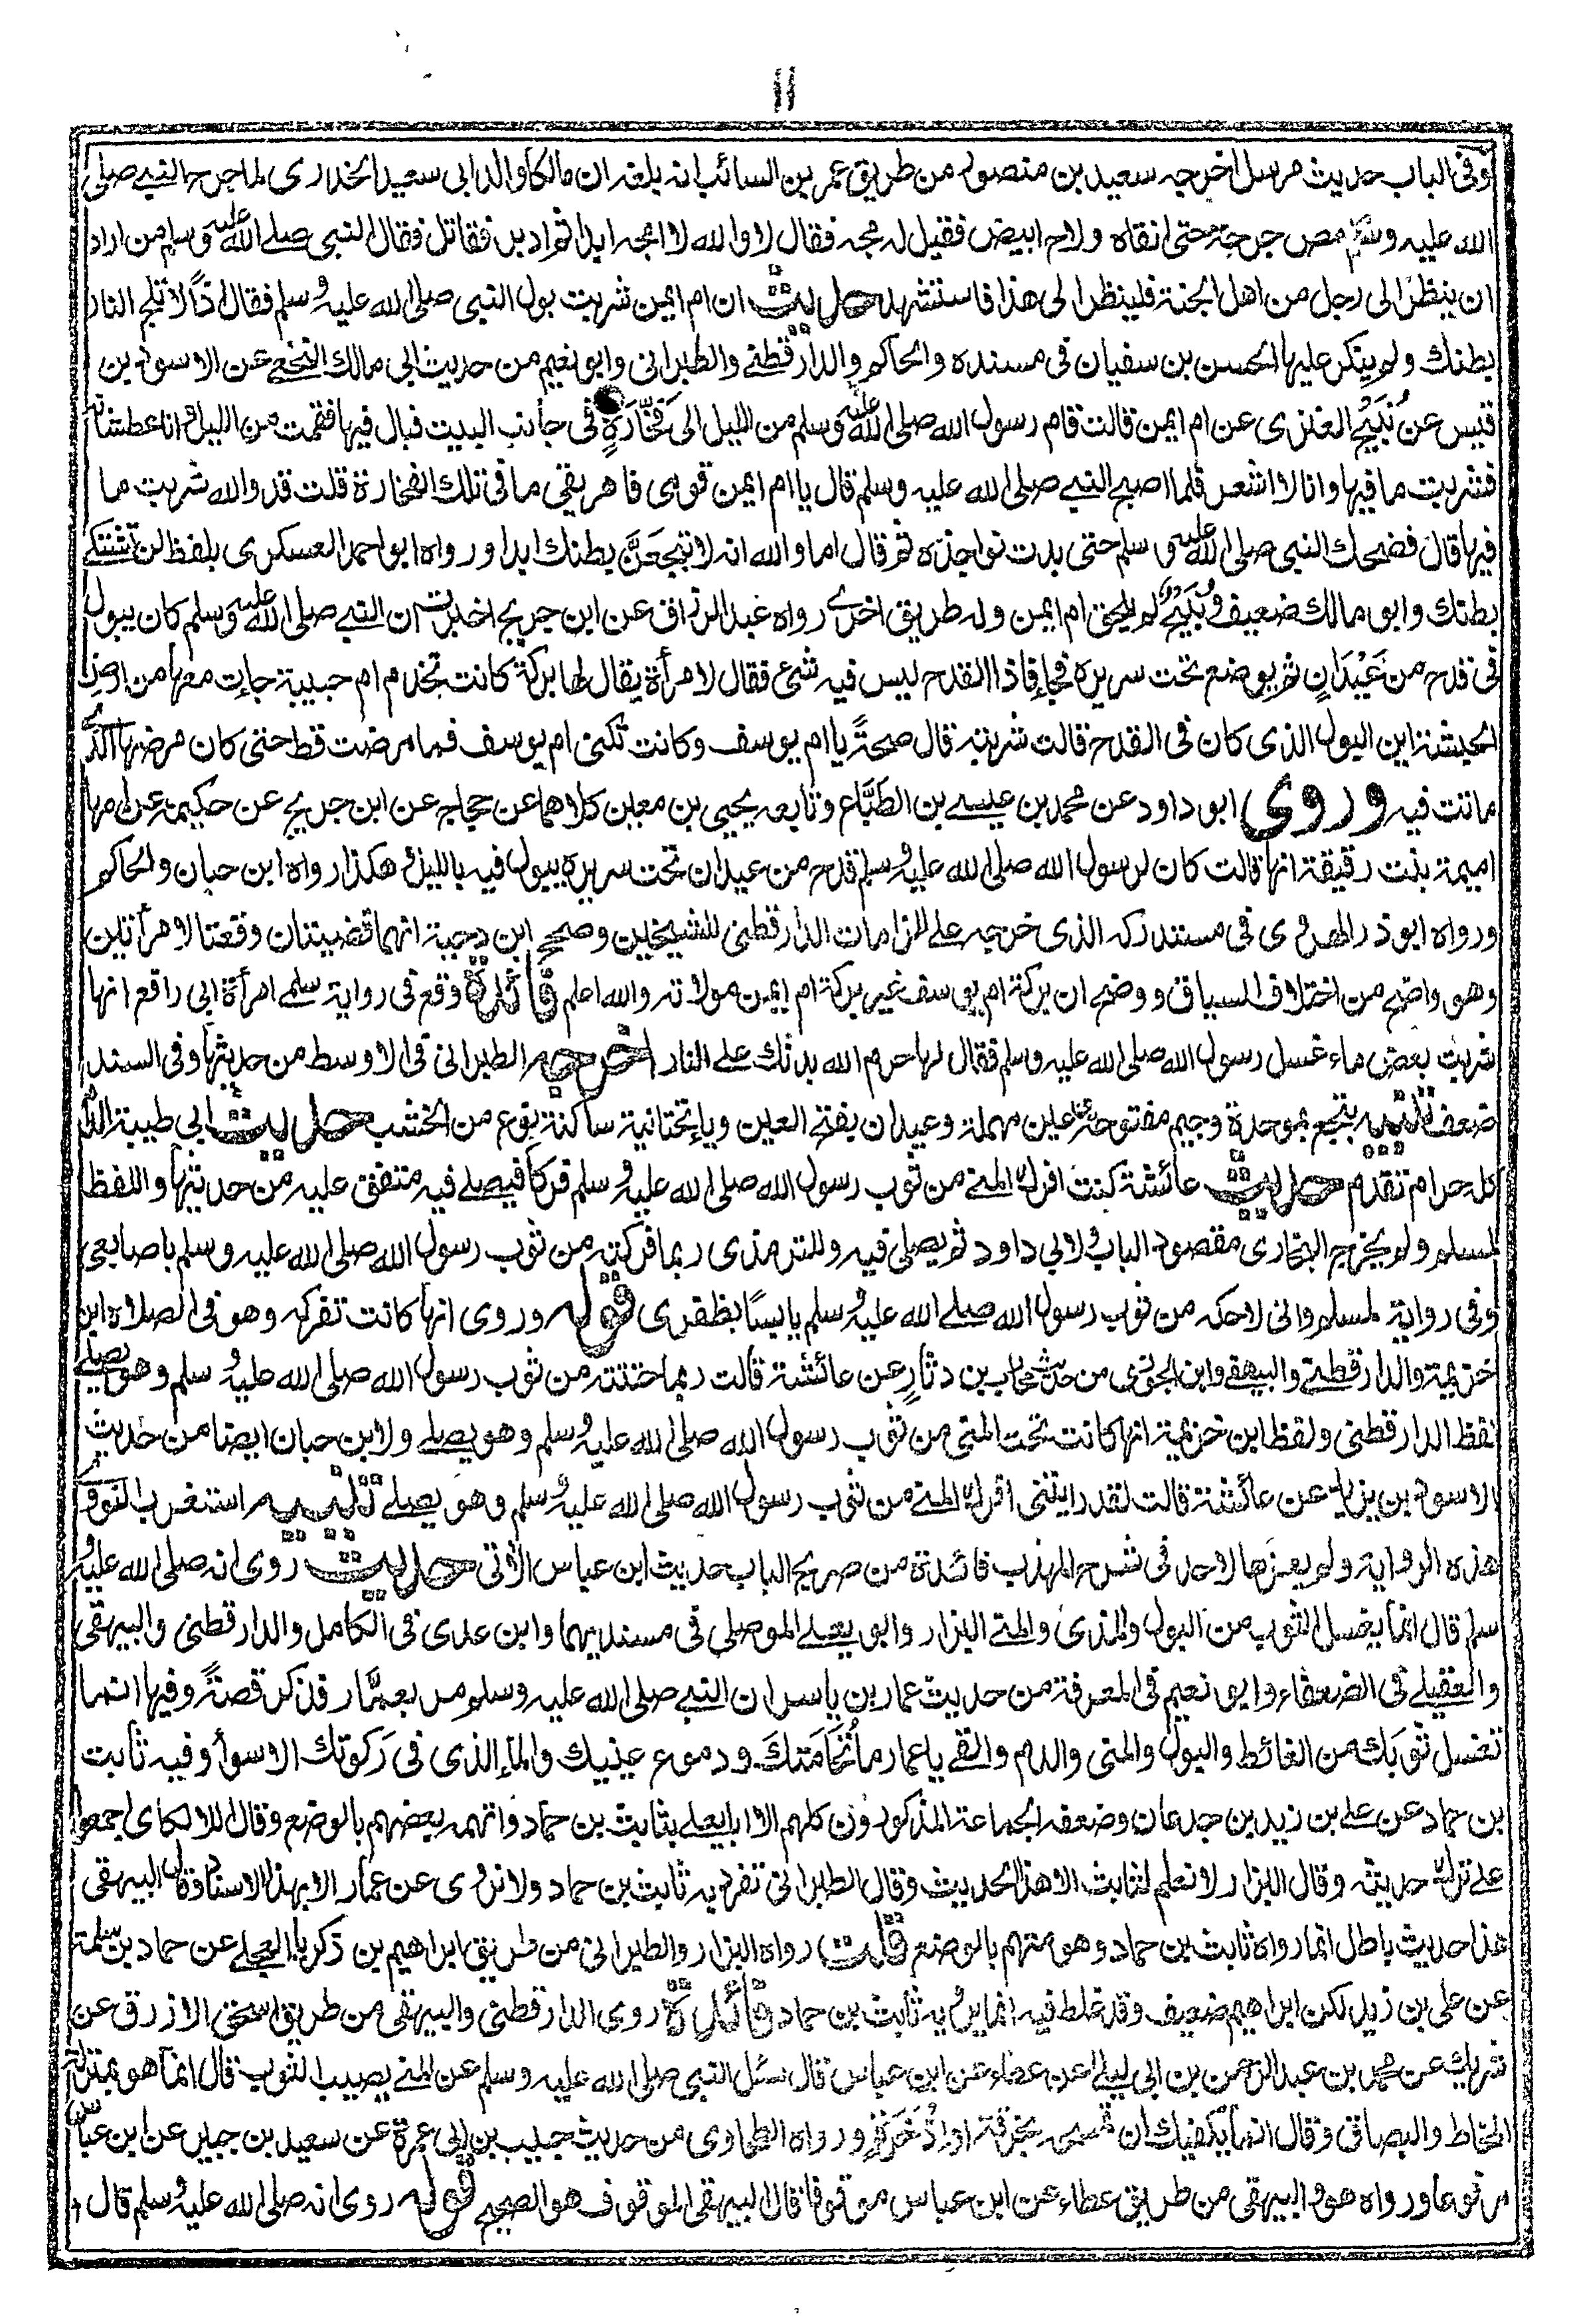 ١١
وفى الباب حديث مرسل اخرجه سعيد بن منصور من طريق عمر بن السائب انه بلغه ان مالكا والد ابى سعيد الخدرى لما جرح النبى صلى
الله عليه وسلم مص جرحه حتى انقاه ولاح ابيض فقيل له مجه فقال لا والله لا امجه ابدا ثم ادبر فقاتل فقال النبى صلى الله عليه وسلم من اراد
ان ينظر الى رجل من اهل الجنة فلينظر الى هذا فاستشهد حديث ان ام ايمن شربت بول النبى صلى الله عليه وسلم فقال اذاً لا تلج النار
بطنك ولم ينكر عليها الحسن بن سفيان فى مسنده والحاكم والدارقطنى والطبرانى وابو نعيم من حديث ابى مالك النخعى عن الاسود بن
قيس عن نُبَيْح العنزى عن ام ايمن قالت قام رسول الله صلى الله عليه وسلم من الليل الى فَخَّارَةٍ فى جانب البيت فبال فيها فقمت من الليل وانا عطشانة
فشربت ما فيها وانا لا اشعر فلما اصبح النبى صلى الله عليه وسلم قال يا ام ايمن قومى فاهريقى ما فى تلك الفخارة قلت قد والله شربت ما
فيها قال فضحك النبى صلى الله عليه وسلم حتى بدت نواجذه ثم قال اما والله انه لا تَبْجَعَنَّ بطنك ابدا ورواه ابو احمد العسكرى بلفظ لن تشتكى
بطنك وابو مالك ضعيف ونُبَيْحٌ لم يلحق ام ايمن وله طريق اخرى رواه عبد الرزاق عن ابن جريج اخبرت ان النبى صلى الله عليه وسلم كان يبول
فى قدح من عَيْدَانٍ ثم يوضع تحت سريره فجاء فاذا القدح ليس فيه شئ فقال لامرأة يقال لها بركة كانت تخدم ام حبيبة جاءت معها من ارض
الحبشة اين البول الذى كان فى القدح قالت شربته قال صحةً يا ام يوسف وكانت تكنى ام يوسف فما مرضت قط حتى كان مرضها الذى
ماتت فيه وروى ابو داود عن محمد بن عيسى بن الطَّبَّاع وتابعه يحيى بن معين كلاهما عن حجاج عن ابن جريج عن حكيمة عن امها
اميمة بنت رقيقة انها قالت كان لرسول الله صلى الله عليه وسلم قدح من عيدان تحت سريره يبول فيه بالليل وهكذا رواه ابن حبان والحاكم
ورواه ابو ذر الهروى فى مستدركه الذى خرجه على الزامات الدارقطنى للشيخين وصحح ابن دحية انهما قضيتان وقعتا لامرأتين
وهو واضح من اختلاف السياق ووضح ان بركة ام يوسف غير بركة ام ايمن مولاته والله اعلم فائدة وقع فى رواية سلمى امرأة ابى رافع انها
شربت بعض ماء غسل رسول الله صلى الله عليه وسلم فقال لها حرم الله بدنك على النار اخرجه الطبرانى فى الاوسط من حديثها وفى السند
ضعف تنبيه بتجع بموحدة وجيم مفتوحة عين مهملة وعيدان بفتح العين وياء تحتانية ساكنة نوع من الخشب حديث ابى طيبة الدم
كله حرام تقدم حديث عائشة كنت افرك المنى من ثوب رسول الله صلى الله عليه وسلم فركا فيصلى فيه متفق عليه من حديثها واللفظ
لمسلم ولم يخرج البخارى مقصود الباب ولابى داود ثم يصلى فيه وللترمذى ربما فركته من ثوب رسول الله صلى الله عليه وسلم باصابعى
وفى رواية لمسلم وانى لاحكه من ثوب رسول الله صلى الله عليه وسلم يابسًا بظفرى قوله وروى انها كانت تفركه وهو فى الصلاة ابن
خزيمة والدارقطنى والبيهقى وابن الجوزى من حديث محارب بن دثارٍ عن عائشة قالت ربما حتته من ثوب رسول الله صلى الله عليه وسلم وهو يصلى
لفظ الدارقطنى ولفظ ابن خزيمة انها كانت تحت المنى من ثوب رسول الله صلى الله عليه وسلم وهو يصلى ولابن حبان ايضا من حديث
الاسود بن يزيد عن عائشة قالت لقد رايتنى افرك المنى من ثوب رسول الله صلى الله عليه وسلم وهو يصلى تنبيه استغرب النووى
هذه الرواية ولم يعزها لاحد فى شرح المهذب فائدة من صريح الباب حديث ابن عباس الآتى حديث روى انه صلى الله عليه و
سلم قال انما يغسل الثوب من البول والمذى والمنى البزار وابو يعلى الموصلى فى مسنديهما وابن عدى فى الكامل والدارقطنى والبيهقى
والعقيلى فى الضعفاء وابو نعيم فى المعرفة من حديث عمار بن ياسر ان النبى صلى الله عليه وسلم مر بعمّار فذكر قصةً وفيها انما
تغسل ثوبك من الغائط والبول والمنى والدم والقى يا عمار ما نُخَامَتكَ ودموع عينيك والماء الذى فى رَكوتك الا سوأ وفيه ثابت
بن حماد عن على بن زيد بن جدعان وضعفه الجماعة المذكورون كلهم الا ابا يعلى بثابت بن حماد واتهمه بعضهم بالوضع وقال اللالكاى اجمعوا
على ترك حديثه وقال البزار لا نعلم لثابت الا هذا الحديث وقال الطبرانى تفرد به ثابت بن حماد ولا نروى عن عمار الا بهذا الاسناد وقال البيهقى
هذا حديث باطل انما رواه ثابت بن حماد وهو متهم بالوضع قلت رواه البزار والطبرانى من طريق ابراهيم بن زكريا العجلى عن حماد بن سلمة
عن على بن زيد لكن ابراهيم ضعيف وقد غلط فيه انما يرويه ثابت بن حماد فائدة روى الدارقطنى والبيهقى من طريق اسحق الازرق عن
شريك عن محمد بن عبد الرحمن بن ابى ليلى عن عطاء عن ابن عباس قال سئل النبى صلى الله عليه وسلم عن المنى يصيب الثوب قال انما هو بمنزلة
المخاط والبصاق وقال انما يكفيك ان تمسحه بخرقة او اِذْخَرَةٍ ورواه الطحاوى من حديث حبيب بن ابى عمرة عن سعيد بن جبير عن ابن عباس
مرفوعا ورواه هو والبيهقى من طريق عطاء عن ابن عباس موقوفا قال البيهقى الموقوف هو الصحيح قوله روى انه صلى الله عليه وسلم قال